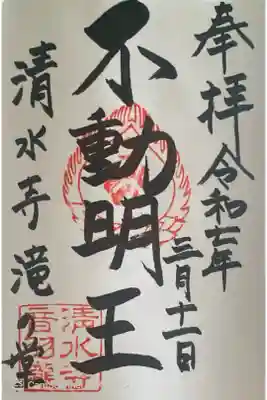 奉拝 令和七年
三月十一日
不動明王
清水寺滝の堂
清水寺
音羽瀧